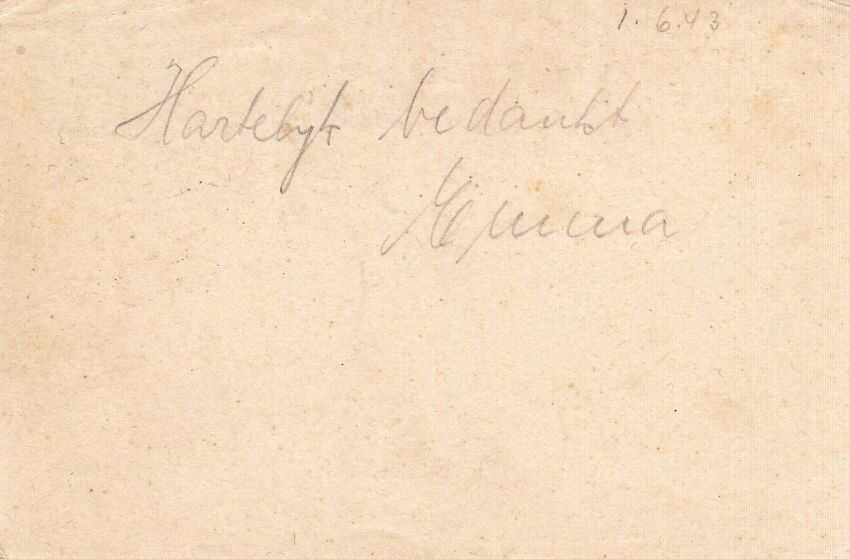 1.6.43
Hartelyk bedankt
Emma